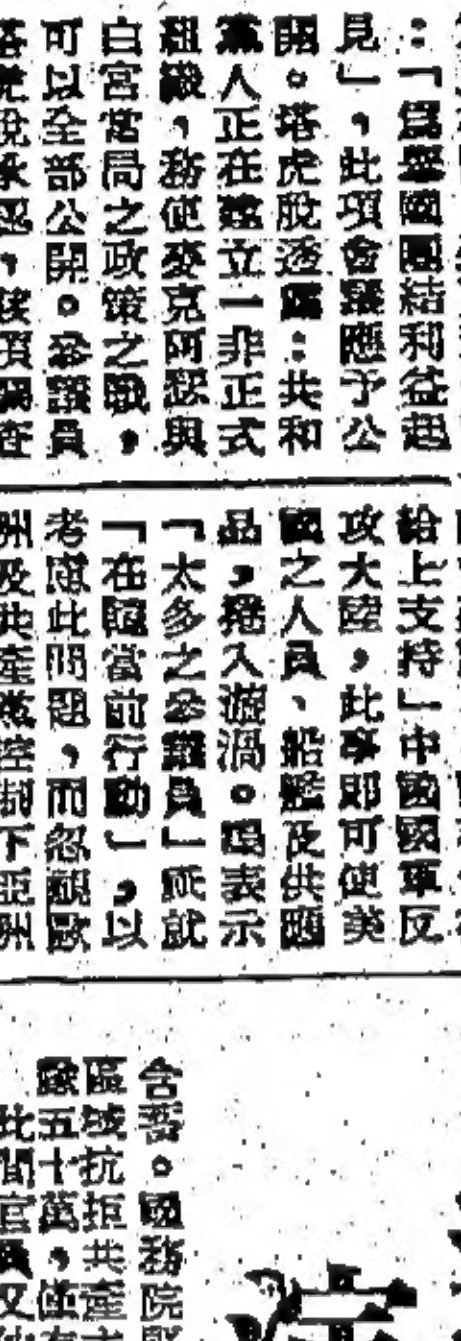 ：「爲舉國團結利益起
見」，此項會議應予公
開。塔虎脫透露：共和
黨人正在建立一非正式
組織，務使麥克阿瑟與
白宮當局之政策之戰，
可以全部公開。參議員
塔虎脫承認，該項調查
給上支持」中國國軍反
攻大陸，此事即可使美
國之人員、船艦及供應
品，捲入漩渦。 表示
「太多之參議員」祇就
「在 當前行動」，以
考慮此問題，而忽視歐
州及共產黨控制下亞州
含蓄。國務院
區域抗拒共產主
歐五十萬，僅有
此間官員又